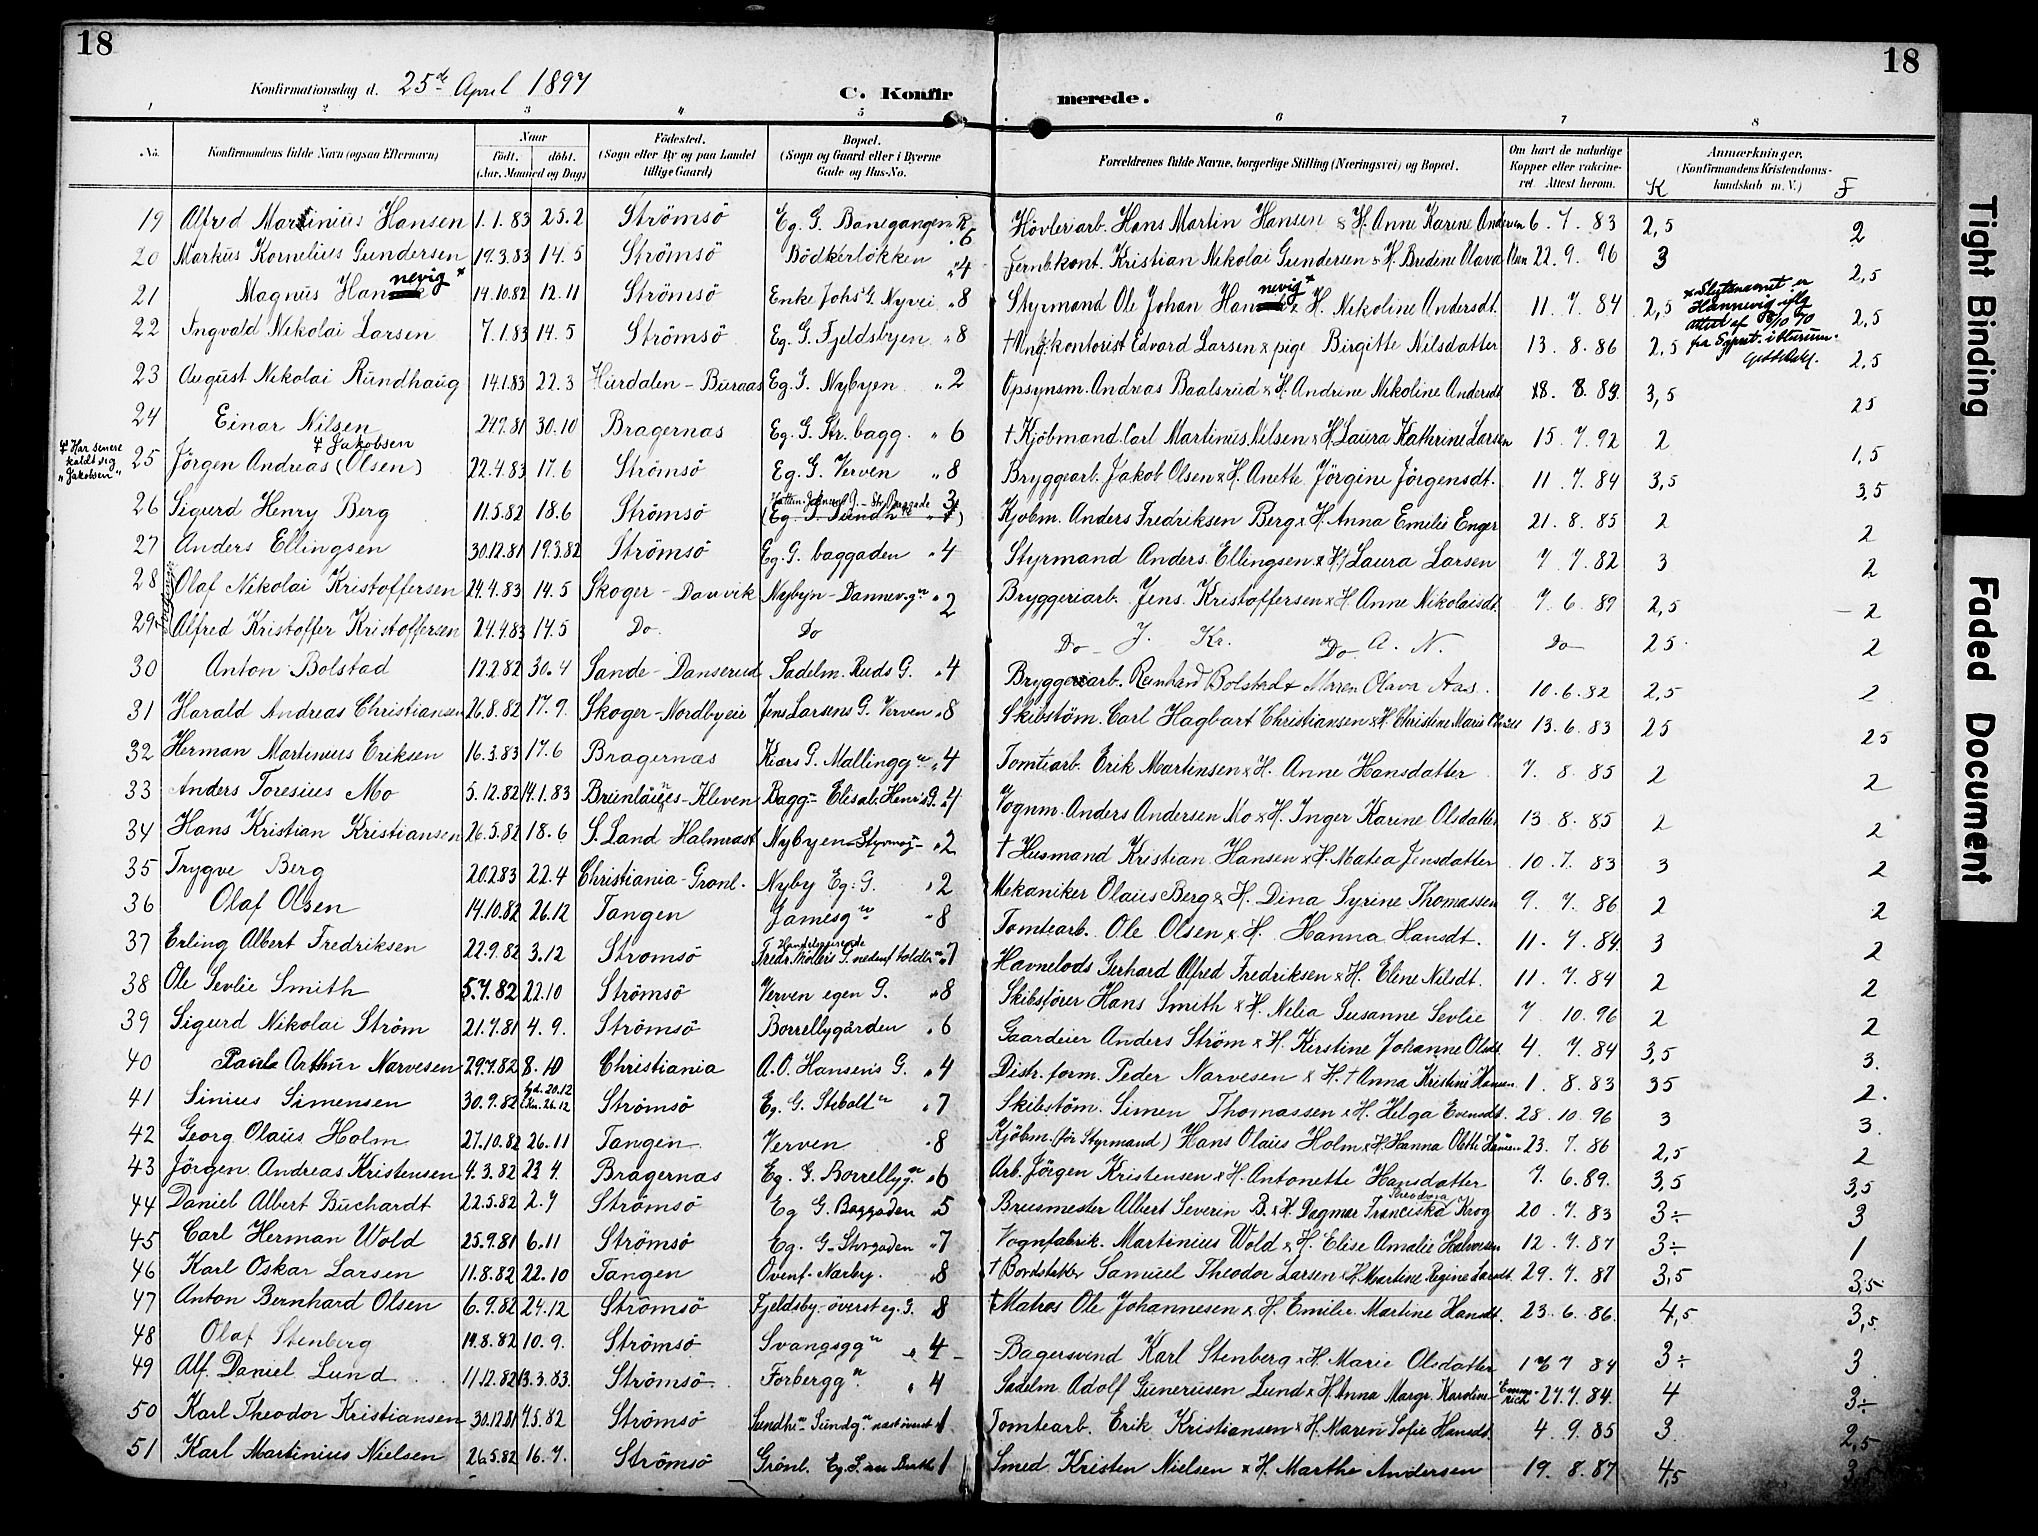 18
18
Konfirmationsdag d. 25de April 1897
C. Konfir merede.
1 2 3 4 5 6 7 8
No. Konfirmandens fulde Navn (ogsaa Efternavn) Naar født. døbt. (Aar, Maaned og Dag) Fødested. (Sogn eller By og paa Landet tillige Gaard) Bopæl. (Sogn og Gaard eller i Byerne Gade og Hus-No. Forældrenes fulde Navne, borgerlige Stilling (Næringsvei) og Bopæl. Om havt de naturlige Kopper eller vakcineret. Attest herom. Anmærkninger. (Konfirmandens Kristendomskundskab m. V.)
K F
19 Alfred Martinius Hansen 1.1.83 25.2 Strömsö Eg. G. Banegangen R. 6 Hövleriarb. Hans Martin Hansen & H. Anne Karine Andersen 6. 7. 83 2,5 2
20 Markus Kornelius Gundersen 19.3.83 14.5 Strömsö Bödkerlökken " 4 Jernb.kont. Kristian Nikolai Gundersen & H. Bredine Olava 22. 9. 96 3 2,5
21 Magnus Hannevig * 14.10.82 12.11 Strömsö Enke Johs' G. Nyvei " 8 Styrmand Ole Johan Hannevig * & H. Nikoline Andersdt. 11. 7. 84 2,5 2,5
* Slegtsnavnet er Hannevig iflg attest af 18/10 70
22 Ingvald Nikolai Larsen 7.1.83 14.5 Strömsö Eg. G. Fjeldsbyen " 8 † Ung.kontorist Edvard Larsen & pige Birgitte Nilsdatter 13. 8. 86 2,5 2,5
23 August Nikolai Rundhaug 14.1.83 22.3 Hurdalen - Buraas Eg. G. Nybyen " 2 Opsynsm. Andreas Baalsrud & H. Andrine Nikoline Andersdt 18. 8. 83. 3,5 25
24 Einar Nilsen 24.9.81 30.10 Bragernas Eg. G. Str. bagg. " 6 † Kjöbmand. Carl Martinus Nilsen & H. Laura Kathrine Larsen 15. 7. 92 2 1,5
‡ Har senere kaldt sig "Jakobsen"
‡ Jakobsen
25 Jörgen Andreas (Olsen) 22.4.83 17.6 Strömsö Eg. G. Verven " 8 Bryggearb. Jakob Olsen & H. Anette Jörgine Jörgensdt. 11. 7. 84 3,5 3,5
26 Sigurd Henry Berg 11.5.82 18.6 Strömsö 3 Kjobm. Anders Fredriksen Berg & H. Anna Emilie Enger 21. 8. 85 2 2
27 Anders Ellingsen 30.12.81 19.3.82 Strömsö Eg. G. baggaden " 4 Styrmand Anders Ellingsen & H. † Laura Larsen 7. 7. 82 3 2
28 Olaf Nikolai Kristoffersen 24.4.83 14.5 Skoger - Danvik Nybyn - Dannev.gn " 2 Bryggeriarb. Jens Kristoffersen & H. Anne Nikolaisdt. 7. 6. 89 2,5 - 2
29 Alfred Kristoffer Kristoffersen 24.4.83 14.5 Do. Do Do J. Kr. Do A. N. Do 25. 2
30 Anton Bolstad 12.2.82 30.4 Sande - Danserud Sadelm. Ruds G. " 4 Bryggeriarb. Reinhard Bolstad & Maren Olava Aas. 10. 6. 82 2,5 2
31 Harald Andreas Christiansen 26.8.82 17.9. Skoger - Nordbyeie Jens Larsens G. Verven " 8 Skibstöm. Carl Hagbart Christiansen & H. Christine Marie 13. 6. 83 25 25
32 Herman Martinius Eriksen 16.3.83 17.6 Bragernas Kiærs G. Mallinggn " 4 Tomtearb. Erik Martinsen & H. Anne Hansdatter 7. 8. 85 2 2
33 Anders Toresius Mo 5.12.82 14.1.83 Brunlanes - Kleven Bagg - Elisab. Henr's G. " 4 Vognm. Anders Andersen Mo & H. Inger Karine Olsdatter 13. 8. 85 2 2
34 Hans Kristian Kristiansen 26.5.82 18.6 S. Land Halmrast Nybyen - Styrmog - " 2 † Husmand Kristian Hansen & H. Matea Jensdatter 10. 7. 83 3 2
35 Trygve Berg 20.2.83 22.4 Christiania - Gronl. Nyby Eg. G. " 2 Mekaniker Olaus Berg & H. Dina Syrine Thomassen 9. 7. 86 2 2
36 Olaf Olsen 14.10.82 26.12 Tangen Jamesgn " 8 Tomtearb. Ole Olsen & H. Hanna Hansdt. 11. 7. 84 3 2
37 Erling Albert Fredriksen 22.9.82 3.12 Stromsö Fredr. Möllers G. " 7 Havnelods Gerhard Alfred Fredriksen & H. Elene Nilsdt. 11. 7. 84 2 2
38 Ole Sevlie Smith 5.7.82 22.10 Strömsö Verven egen G. " 8 Skibsförer Hans Smith & H. Nelia Susanne Sevlie 7 10. 96 2 2
39 Sigurd Nikolai Ström 21.7.81 4.9. Strömsö Borrellygården " 6 Gaardeier Anders Ström & H. Kirstine Johanne Olsdt. 4. 7. 84 3,5 3.
40 Paul Arthur Narvesen 29.7.82 8.10 Christiania A.O. Hansens G. " 4 Distr. form. Peder Narvesen & H. † Anna Kristine Hansen 1. 8. 83 35 2.
41 Sinius Simensen 30.9.82 hjd. 20.12 Kn. 26.12 Strömsö Eg. G. Stiboltn " 7 Skibstöm. Simen Thomassen & H. Helga Evensdt. 28. 10. 96 3 3.
42 Georg Olaus Holm 27.10.82 26.11 Tangen Verven " 8 Kjöbm. (för Styrmand) Hans Olaus Holm & H. Hanna Olette Hansen 23. 7. 86 2,5 2
43 Jörgen Andreas Kristensen 4.3.82 23 4. Bragernas Eg. G. Borrellyg.n " 6 Arb. Jörgen Kristensen & H. Antonette Hansdatter 7. 6. 89. 3,5 3,5
44 Daniel Albert Buchardt 22.5.82 2.7 Strömsö Eg G. Baggaden " 5 Brusmester Albert Severin B. & H. Dagmar Theodora Franciska Krog 20. 7. 83 3÷ 3
45 Carl Herman Wold 25.9.81 6.11 Strömsö Eg. G. Storgaden " 7 Vognfabrik. Martinius Wold & H. Elise Amalie Halvorsen 12. 7. 87 3÷ 1
46 Karl Oskar Larsen 11.8.82 22.10 Tangen Ovenf. Narby. " 8 † Bordstabler Samuel Theodor Larsen & H. Martine Regine Larsdt. 29. 7. 87 3,5 3,5
47 Anton Bernhard Olsen 6.9.82 24.12 Strömsö Fjeldsby - överst eg. G. 8 † Matros Ole Johannesen & H. Emilie Martine Hansdt. 23. 6. 86. 4,5 3,5
48 Olaf Stenberg 14.8.82 10.9. Strömsö Svangsggn " 4 Bagersvend Karl Stenberg & H. Marie Olsdatter 1 7 84 3÷ 3
49 Alf. Daniel Lund 11.12.82 13.3.83. Strömsö Forberggn. " 4 Sadelm. Adolf Gunerusen Lund & H. Anna Margr. Karoline Emmerich 27. 7. 84. 4 3÷
50 Karl Theodor Kristiansen 30.12.81 7.5.82 Strömsö Sundhn Sundgn næst överst 1 Tomtearb. Erik Kristiansen & H. Maren Sofie Hansdt. 4. 9. 85 3 2,5
51 Karl Martinius Nielsen 26.5.82 16.7. Strömsö Grönl. Eg. G. 1 Smed Kristen Nielsen & H. Marthe Andersen 19. 8. 87 4,5 3,5
Tight Binding
Faded Document